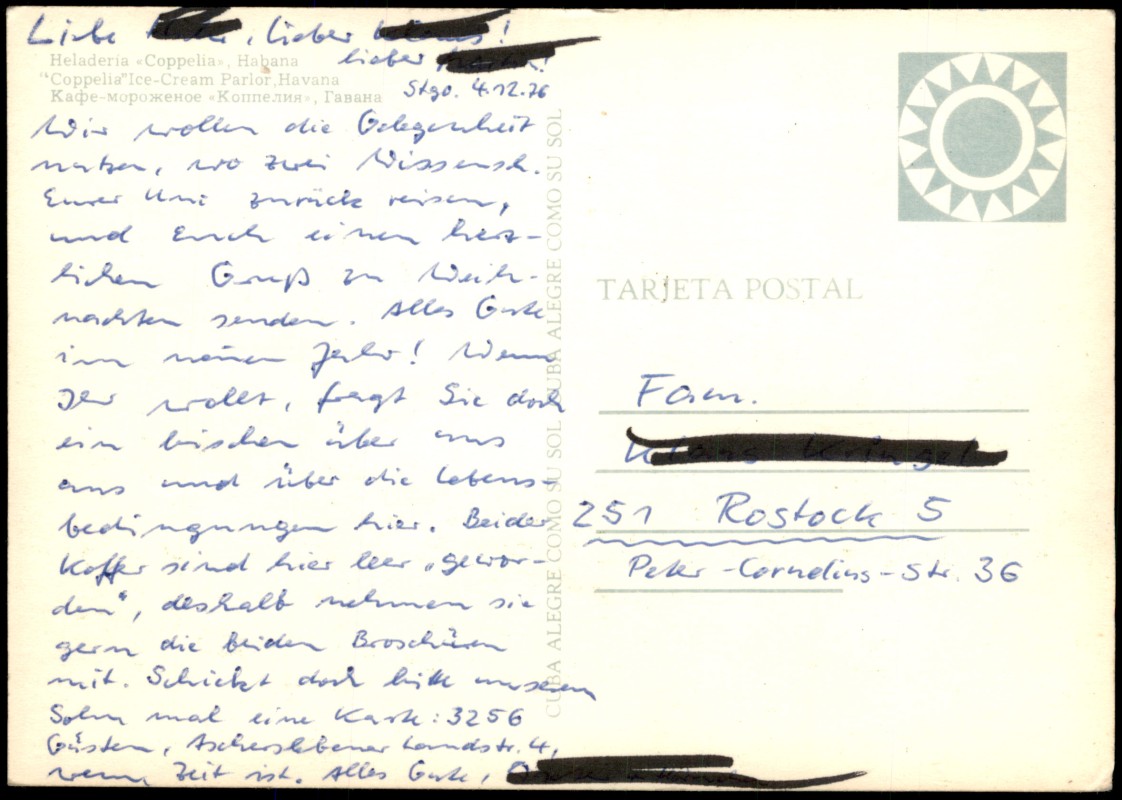 Liebe , lieber !
lieber !
Heladería «Coppelia», Habana
"Coppelia" Ice-Cream Parlor, Havana
Кафе-мороженое «Коппелия», Гавана
Stgo. 4.12.76
Wir wollen die Gelegenheit
nutzen, wo zwei Wissensch.
Eurer Uni zurück reisen,
und Euch einen herz-
lichen Gruß zu Weih-
nachten senden. Alles Gute
im neuen Jahr! Wenn
Ihr wollt, fragt Sie doch
ein bischen über uns
aus und über die Lebens-
bedingungen hier. Beider
Koffer sind hier leer „gewor-
den", deshalb nehmen sie
gern die beiden Broschüren
mit. Schickt doch bitte unserem
Sohn mal eine Karte: 3256
Güsten, Ascherslebener Landstr. 4,
wenn Zeit ist. Alles Gute,
CUBA ALEGRE COMO SU SOL CUBA ALEGRE COMO SU SOL
TARJETA POSTAL
Fam.
251 Rostock 5
Peter-Cornelius-Str. 36